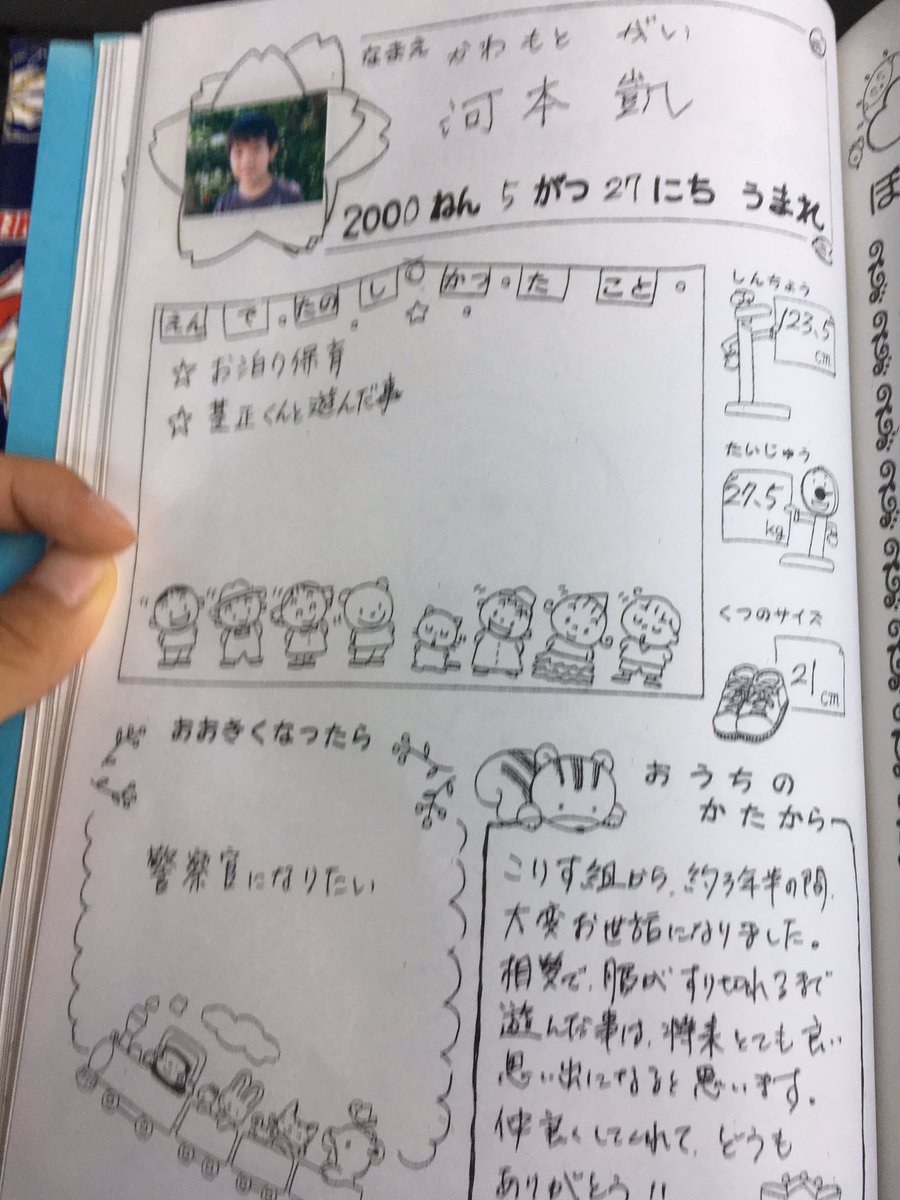 なまえ かわもと がい
河本 凱
2000 ねん 5 がつ 27 にち うまれ
えんで。たのしかった こと。
☆ お泊り保育
☆ 基正くんと遊んだ事
しんちょう
123.5
cm
たいじゅう
27.5
kg
くつのサイズ
21
cm
おおきくなったら
警察官になりたい
おうちの
かたから
こりす組から、約3年半の間、
大変お世話になりました。
相撲で、服がすり切れるまで
遊んだ事は、将来とても良い
思い出になると思います。
仲良くしてくれて、どうも
ありがとう!!